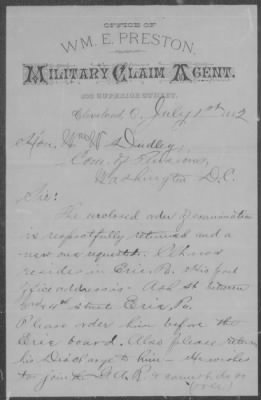 OFFICE OF
WM. E. PRESTON,
MILITARY CLAIM AGENT.
SUPERIOR STREET.
Cleveland, O. July 1st 1882
Hon. Wm W Dudley,
Com. of Pensions,
Washington D.C.
Sir:
The enclosed order of examination
is respectfully returned and a
new one requested. He now
resides in Erie, Pa. His post
office address is Ash St between
11th Street Erie, Pa.
Please order him before the
Erie board. Also please return
his Discharge to him - He wishes
to join the G.A.R. & cannot do so
(over)